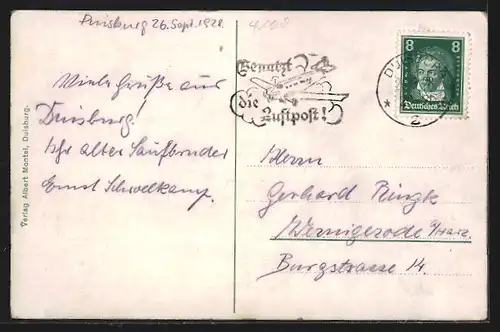 Duisburg 26. Sept. 1928.
8 8
Deutsches Reich
Benutzt
die
Luftpost!
DU
2
Viele Grüße aus
Duisburg!
Ihr alter Laufbruder
Ernst Schwelkamp.
Herrn
Gerhard Ringk
Wernigerode a/Harz
Burgstrasse 14.
Verlag Albert Montel, Duisburg.